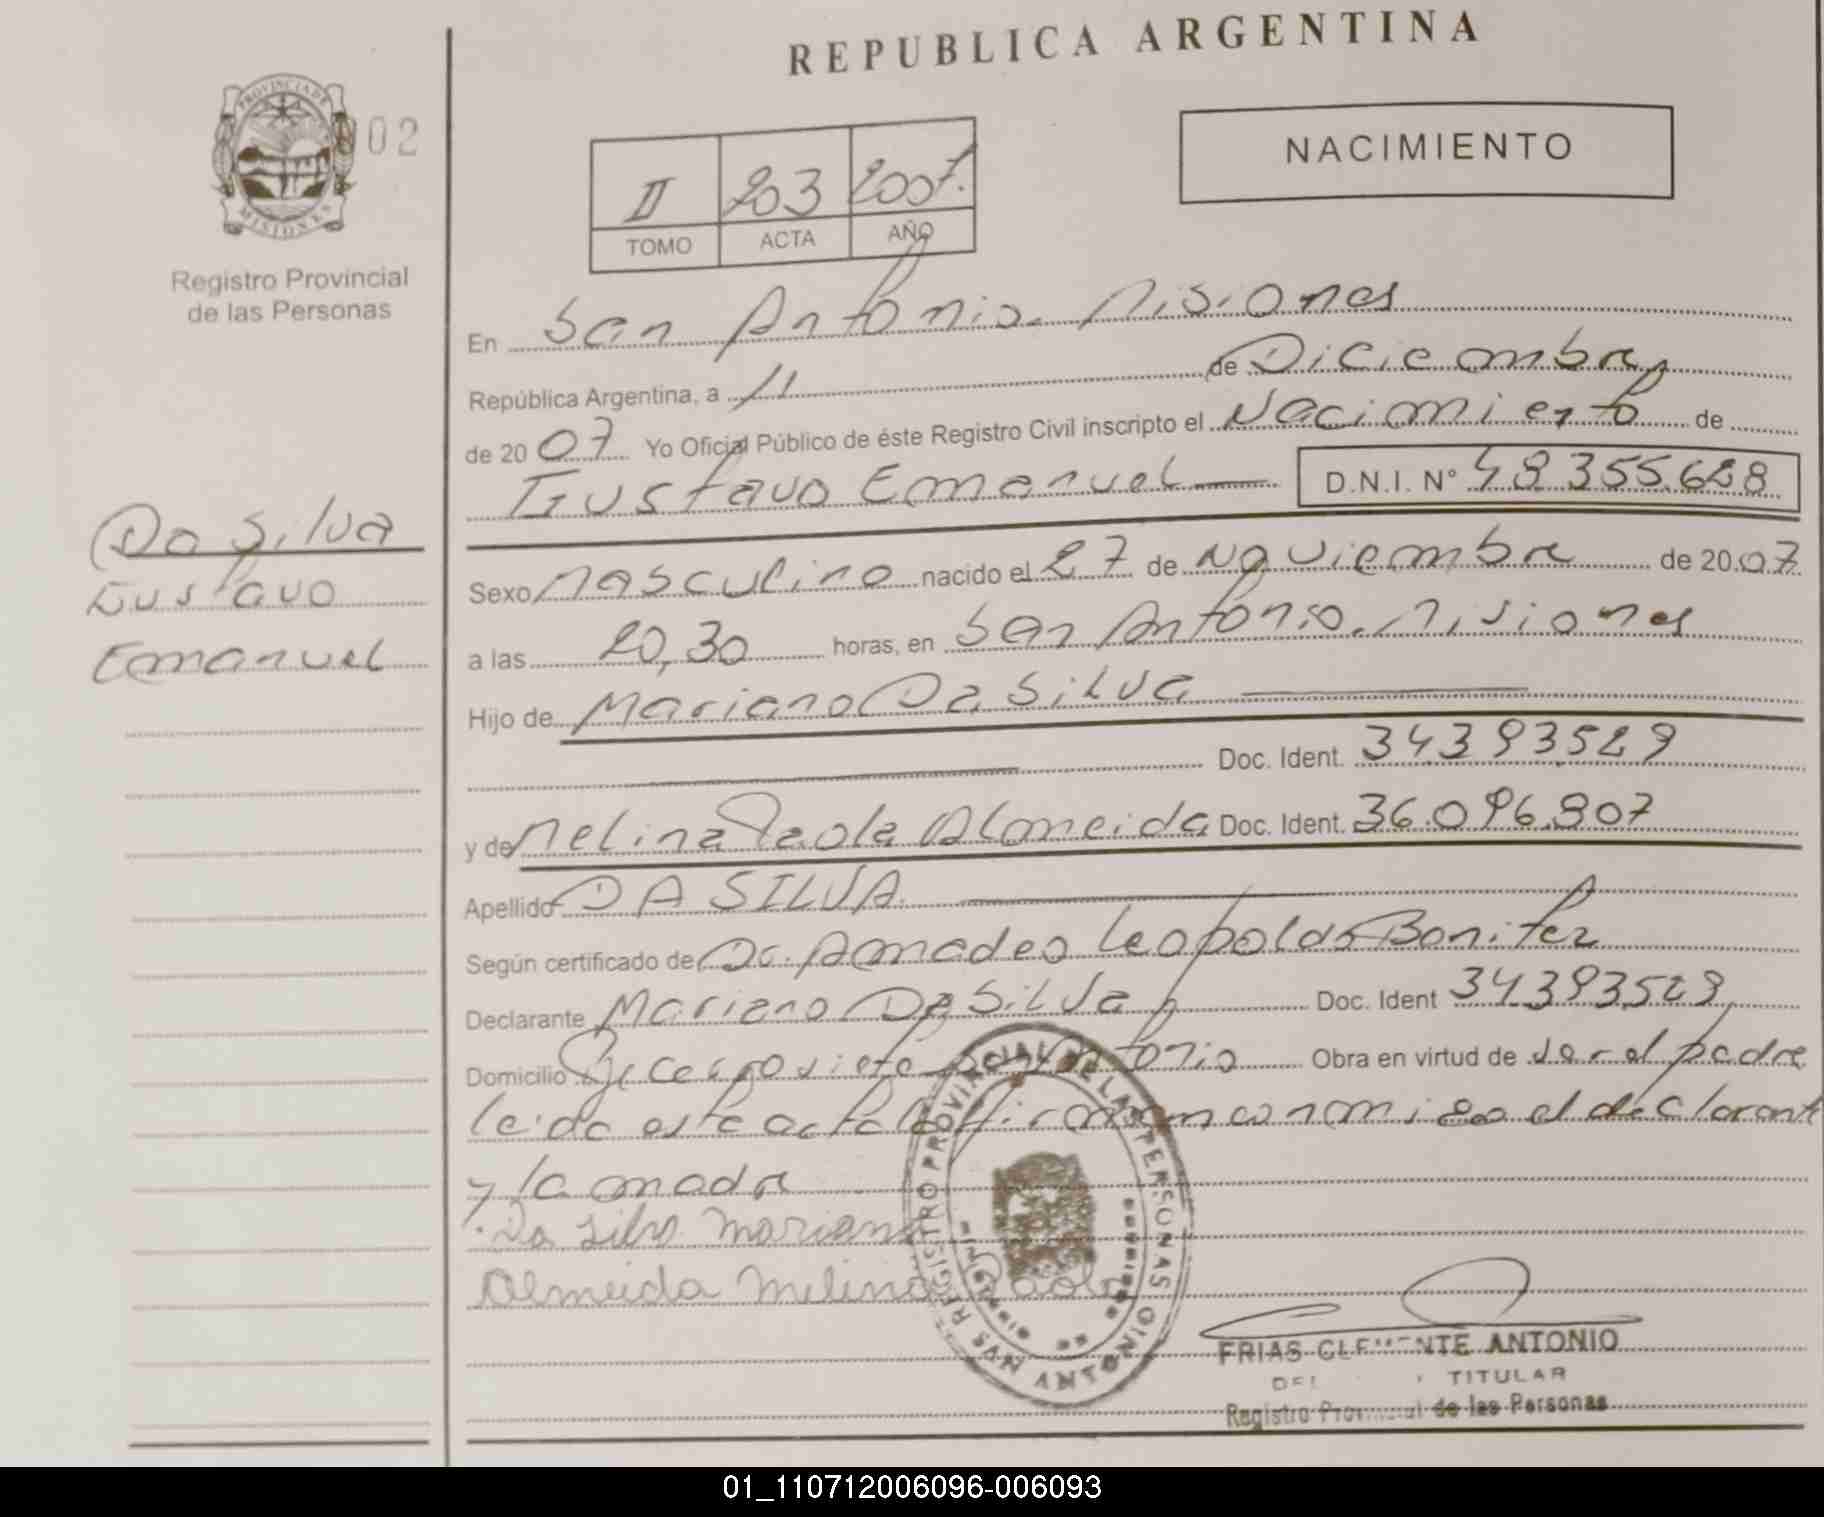 REPUBLICA ARGENTINA
PROVINCIA DE
MISIONES
02
Registro Provincial
de las Personas
II 203 2007.
TOMO ACTA AÑO
NACIMIENTO
En San Antonio. Misiones
República Argentina, a 11 de Diciembre
de 2007 Yo Oficial Público de éste Registro Civil inscripto el Nacimiento de
Gustavo Emanuel D.N.I. Nº 48355.628
Da Silva
Gustavo
Emanuel
Sexo Masculino nacido el 27 de Noviembre de 2007
a las 20,30 horas, en San Antonio. Misiones
Hijo de Mariano Da Silva
Doc. Ident. 34393529
y de Melina Paola Almeida Doc. Ident. 36.096.807
Apellido DA SILVA.
Según certificado de Dr. Amadeo Leopoldo Bonitez
Declarante Mariano Da Silva Doc. Ident 34393529
Domicilio San Antonio Obra en virtud de ser el padre
leida esta acta la firman conmigo el declarante
y la madre
Da Silva Mariano
Almeida Melina Paola
REGISTRO PROVINCIAL DE LAS PERSONAS
SAN ANTONIO
FRIAS CLEMENTE ANTONIO
TITULAR
Registro Provincial de las Personas
01_110712006096-006093